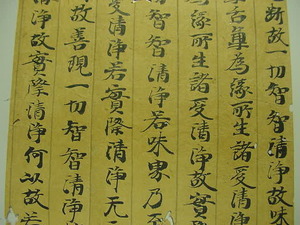 断故一切智智清淨故味
舌觸為緣所生諸受清淨
為緣所生諸受清淨故實
智智清淨若味界乃至
受清淨若實際清淨无二
故善現一切智智清淨
清淨故實際清淨何以故若